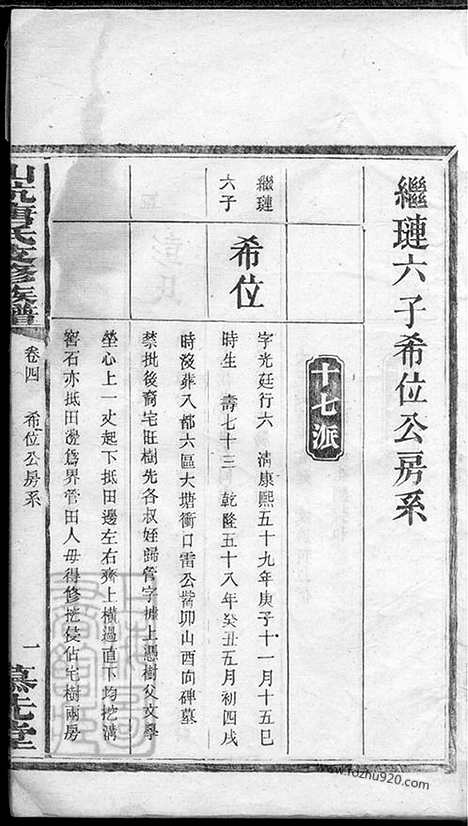 繼璉六子希位公房系
十七派
繼璉
六子
希位
字光廷行六 清康熙五十九年庚子十一月十五巳
時生 壽七十三 乾隆五十八年癸丑五月初四戌
時沒葬入都六區大塘衝口雷公觜卯山酉向碑墓
禁批後裔宅旺樹先各叔姪歸管字據上憑樹父文學
塋心上一丈起下抵田邊左右齊上橫過直下均挖溝
窖石亦抵田邊為界管田人毋得修挖侵佔宅樹兩房
唐氏支修族譜
卷四
希位公房系
一
慕先堂
www.fozhu920.com